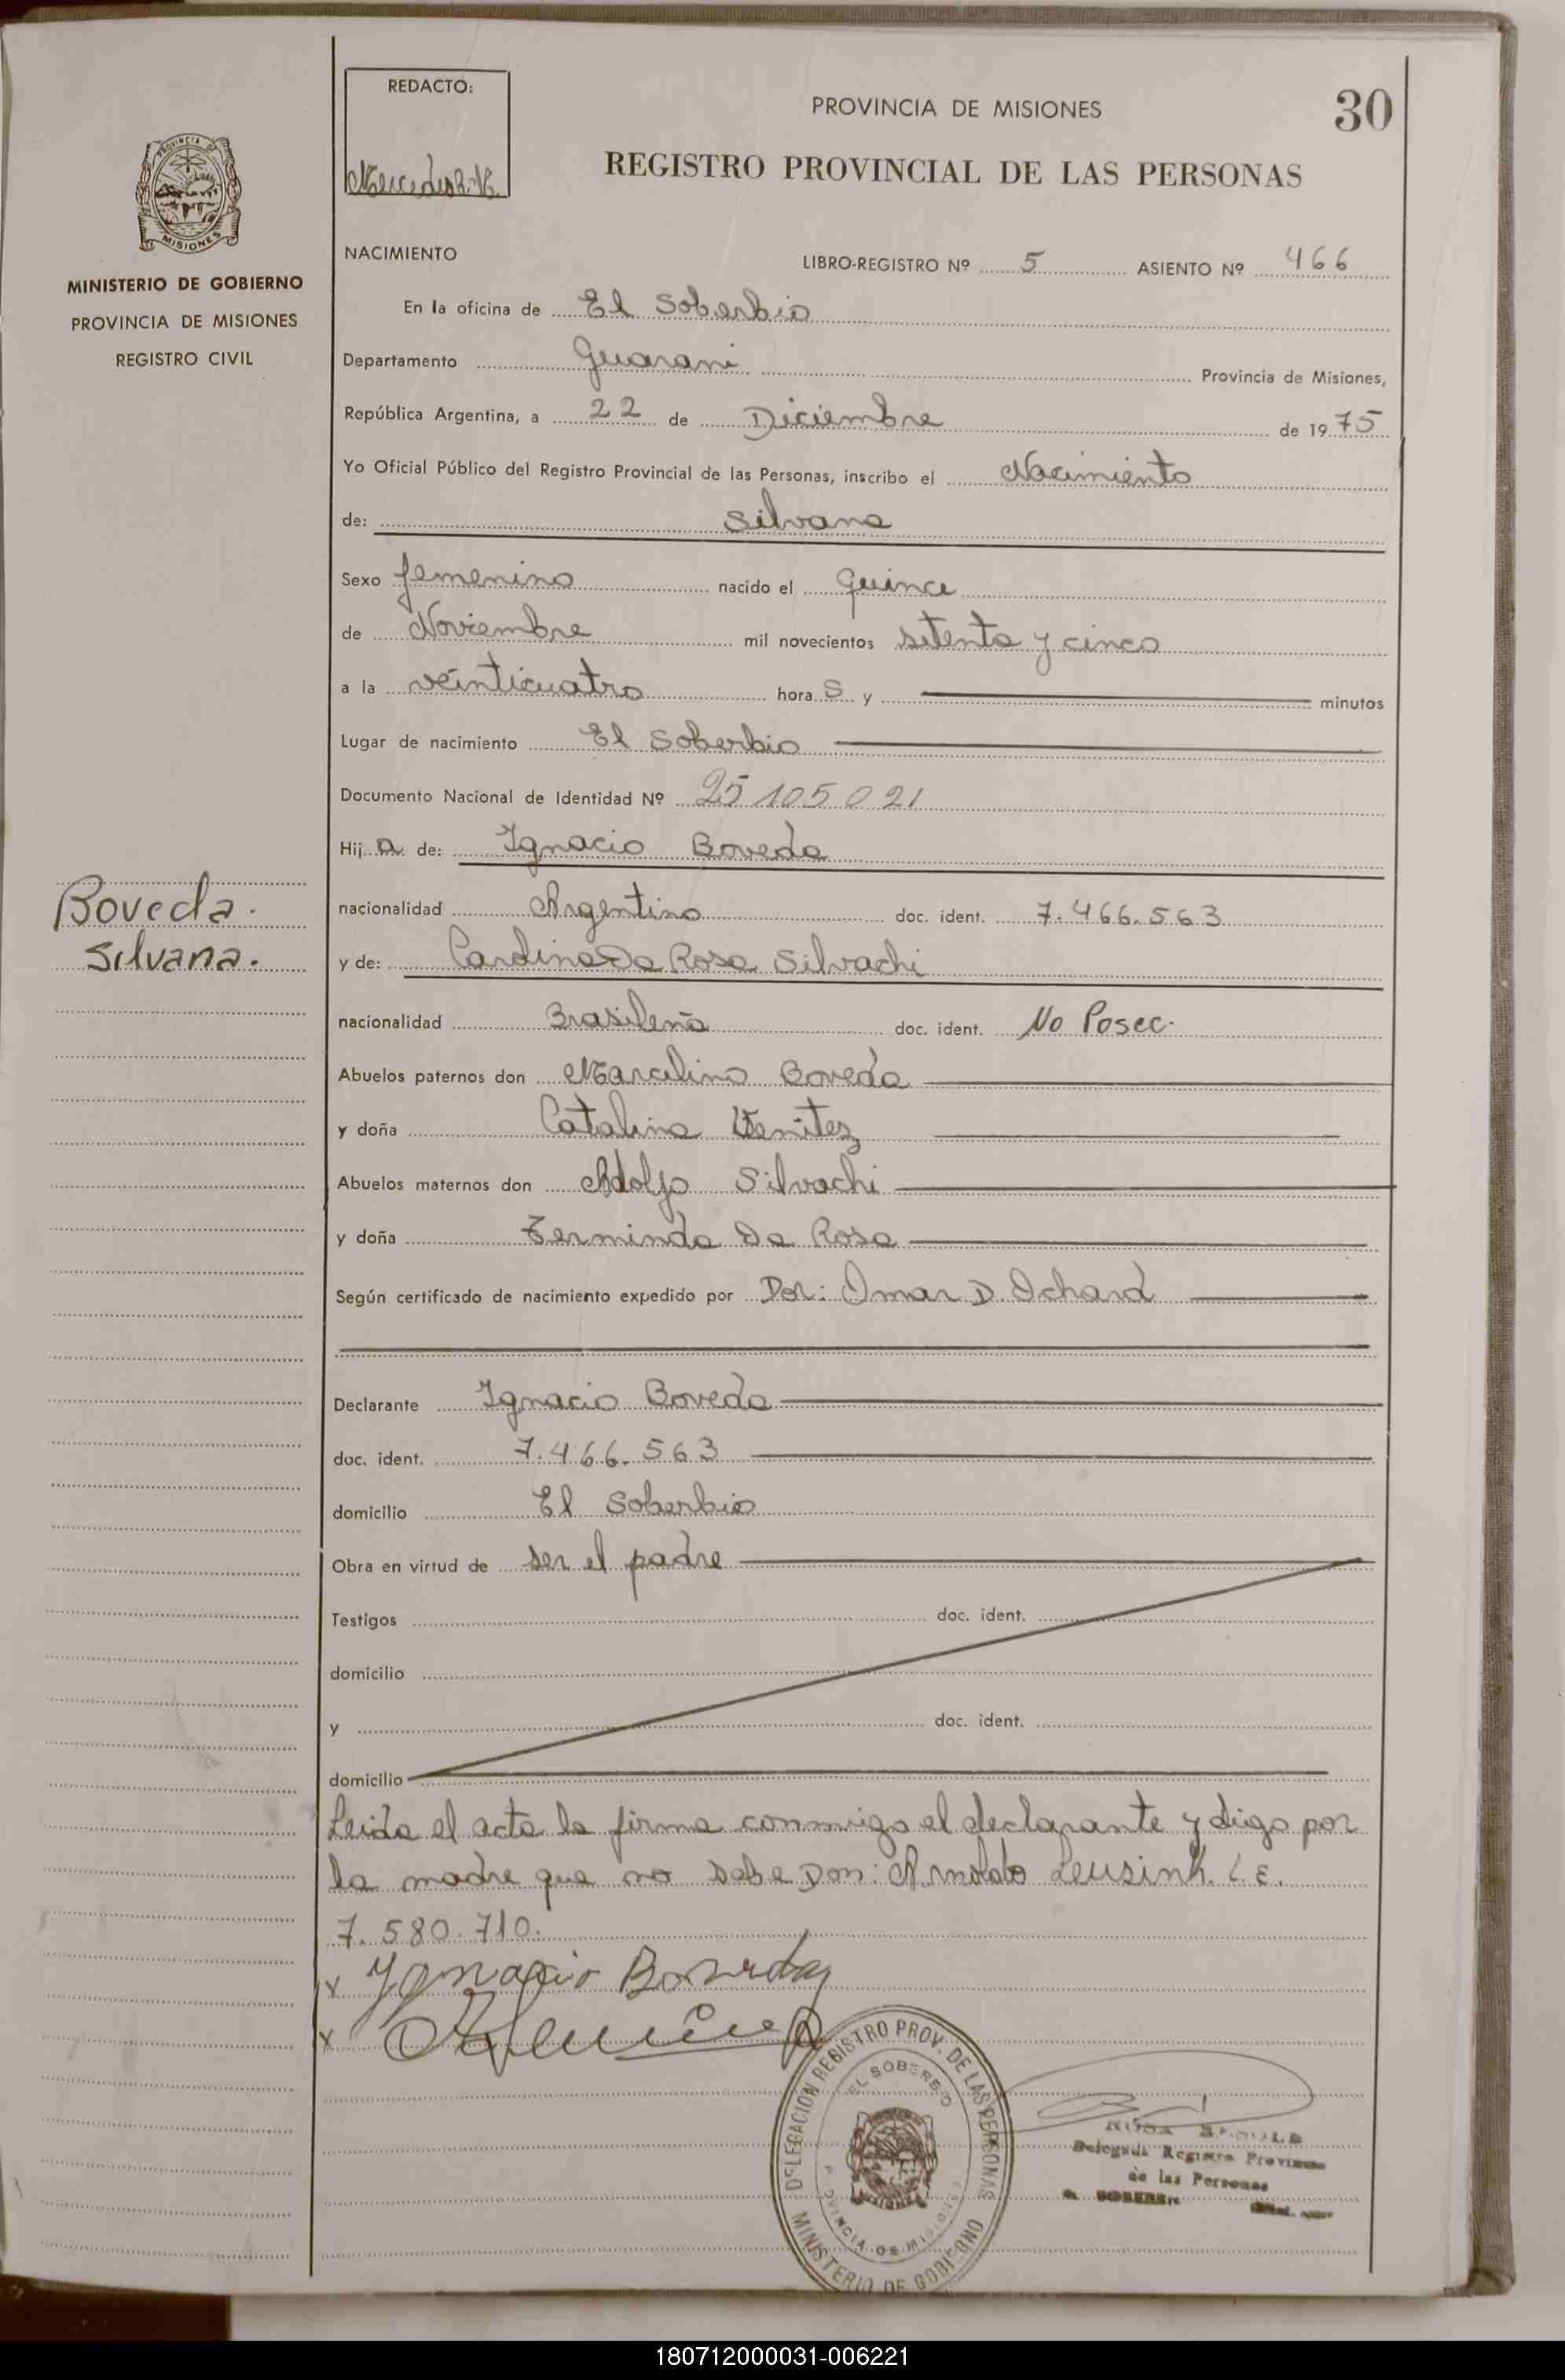 REDACTO:
PROVINCIA DE MISIONES
30
REGISTRO PROVINCIAL DE LAS PERSONAS
PROVINCIA DE
MISIONES
MINISTERIO DE GOBIERNO
PROVINCIA DE MISIONES
REGISTRO CIVIL
NACIMIENTO
LIBRO-REGISTRO Nº 5 ASIENTO Nº 466
En la oficina de El Soberbio
Departamento Guarani Provincia de Misiones,
República Argentina, a 22 de Diciembre de 1975
Yo Oficial Público del Registro Provincial de las Personas, inscribo el Nacimiento
de: Silvana
Sexo femenino nacido el quince
de Noviembre mil novecientos setenta y cinco
a la veinticuatro hora s y minutos
Lugar de nacimiento El Soberbio
Documento Nacional de Identidad Nº 25 105 021
Hij a de: Ignacio Boveda
Boveda.
Silvana.
nacionalidad Argentino doc. ident. 7.466.563
y de: Da Rosa Silvachi
nacionalidad Brasileña doc. ident. No Posee.
Abuelos paternos don Marcelino Boveda
y doña Catalina Venitez
Abuelos maternos don Adolfo Silvachi
y doña Da Rosa
Según certificado de nacimiento expedido por Dor: Omar D. Ichard
Declarante Ignacio Boveda
doc. ident. 7.466.563
domicilio El Soberbio
Obra en virtud de ser el padre
Testigos doc. ident.
domicilio
y doc. ident.
domicilio
Leida el acta la firma conmigo el declarante y digo por
la madre que no sabe Don: Arnoldo Leusink. L.E.
7.580.710.
x Ygnacio Boveda
x
DELEGACION REGISTRO PROV. DE LAS PERSONAS
EL SOBERBIO
PROVINCIA DE MISIONES
MINISTERIO DE GOBIERNO
ROSA
Delegada Registro Provincial
de las Personas
180712000031-006221